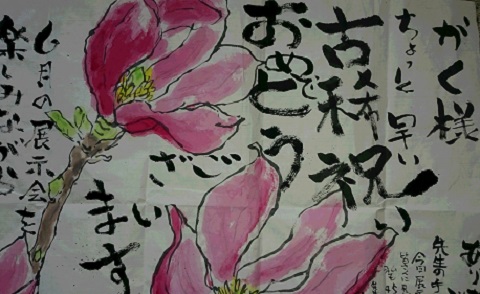 がく様
ちょっと早い
古稀祝い
おめでとう
ございます
6月の展示会を
楽しみながら
先生の手
今回展